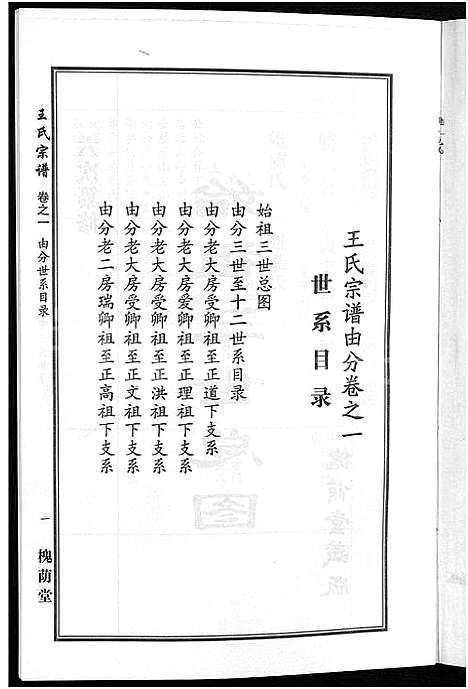 王氏宗谱由分卷之一
世系目录
始祖三世总图
由分三世至十二世系目录
由分老大房受卿祖至正道下支系
由分老大房爱卿祖至正理祖下支系
由分老大房受卿祖至正洪祖下支系
由分老大房受卿祖至正文祖下支系
由分老二房瑞卿祖至正高祖下支系
王氏宗谱 卷之一 由分世系目录
一 槐荫堂